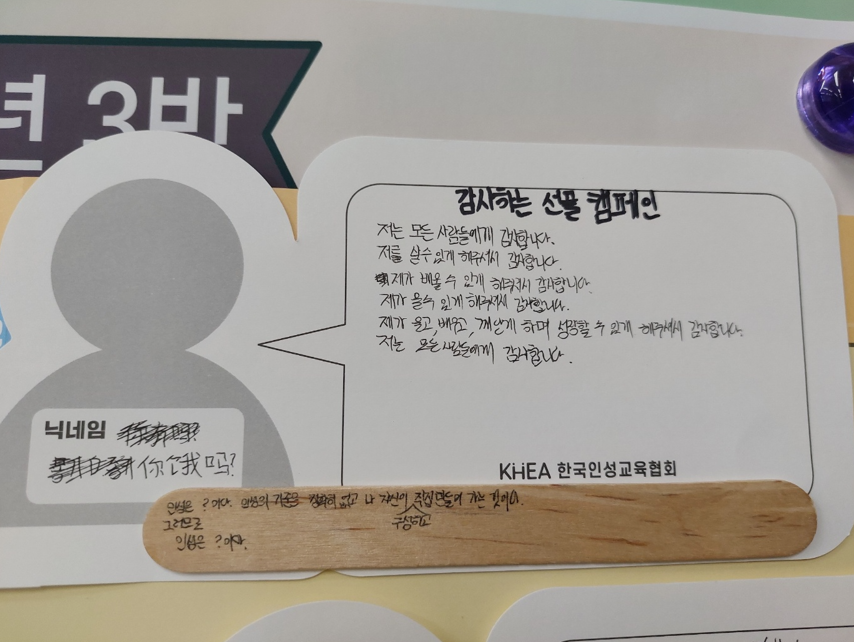 년 3반
감사하는 선물 캠페인
저는 모든 사람들에게 감사합니다.
저를 살 수 있게 해주셔서 감사합니다.
제가 배울 수 있게 해주셔서 감사합니다.
제가 울 수 있게 해주셔서 감사합니다.
제가 울고, 배우고, 깨닫게 하며 성장할 수 있게 해주셔서 감사합니다.
저는 모든 사람들에게 감사합니다.
닉네임
我吗?
KHEA 한국인성교육협회
인성은 ?이다. 인성의 기준은 정확히 없고 나 자신이 직접 만들어 가는 것이다.
구상하고
그러므로
인성은 ?이다.